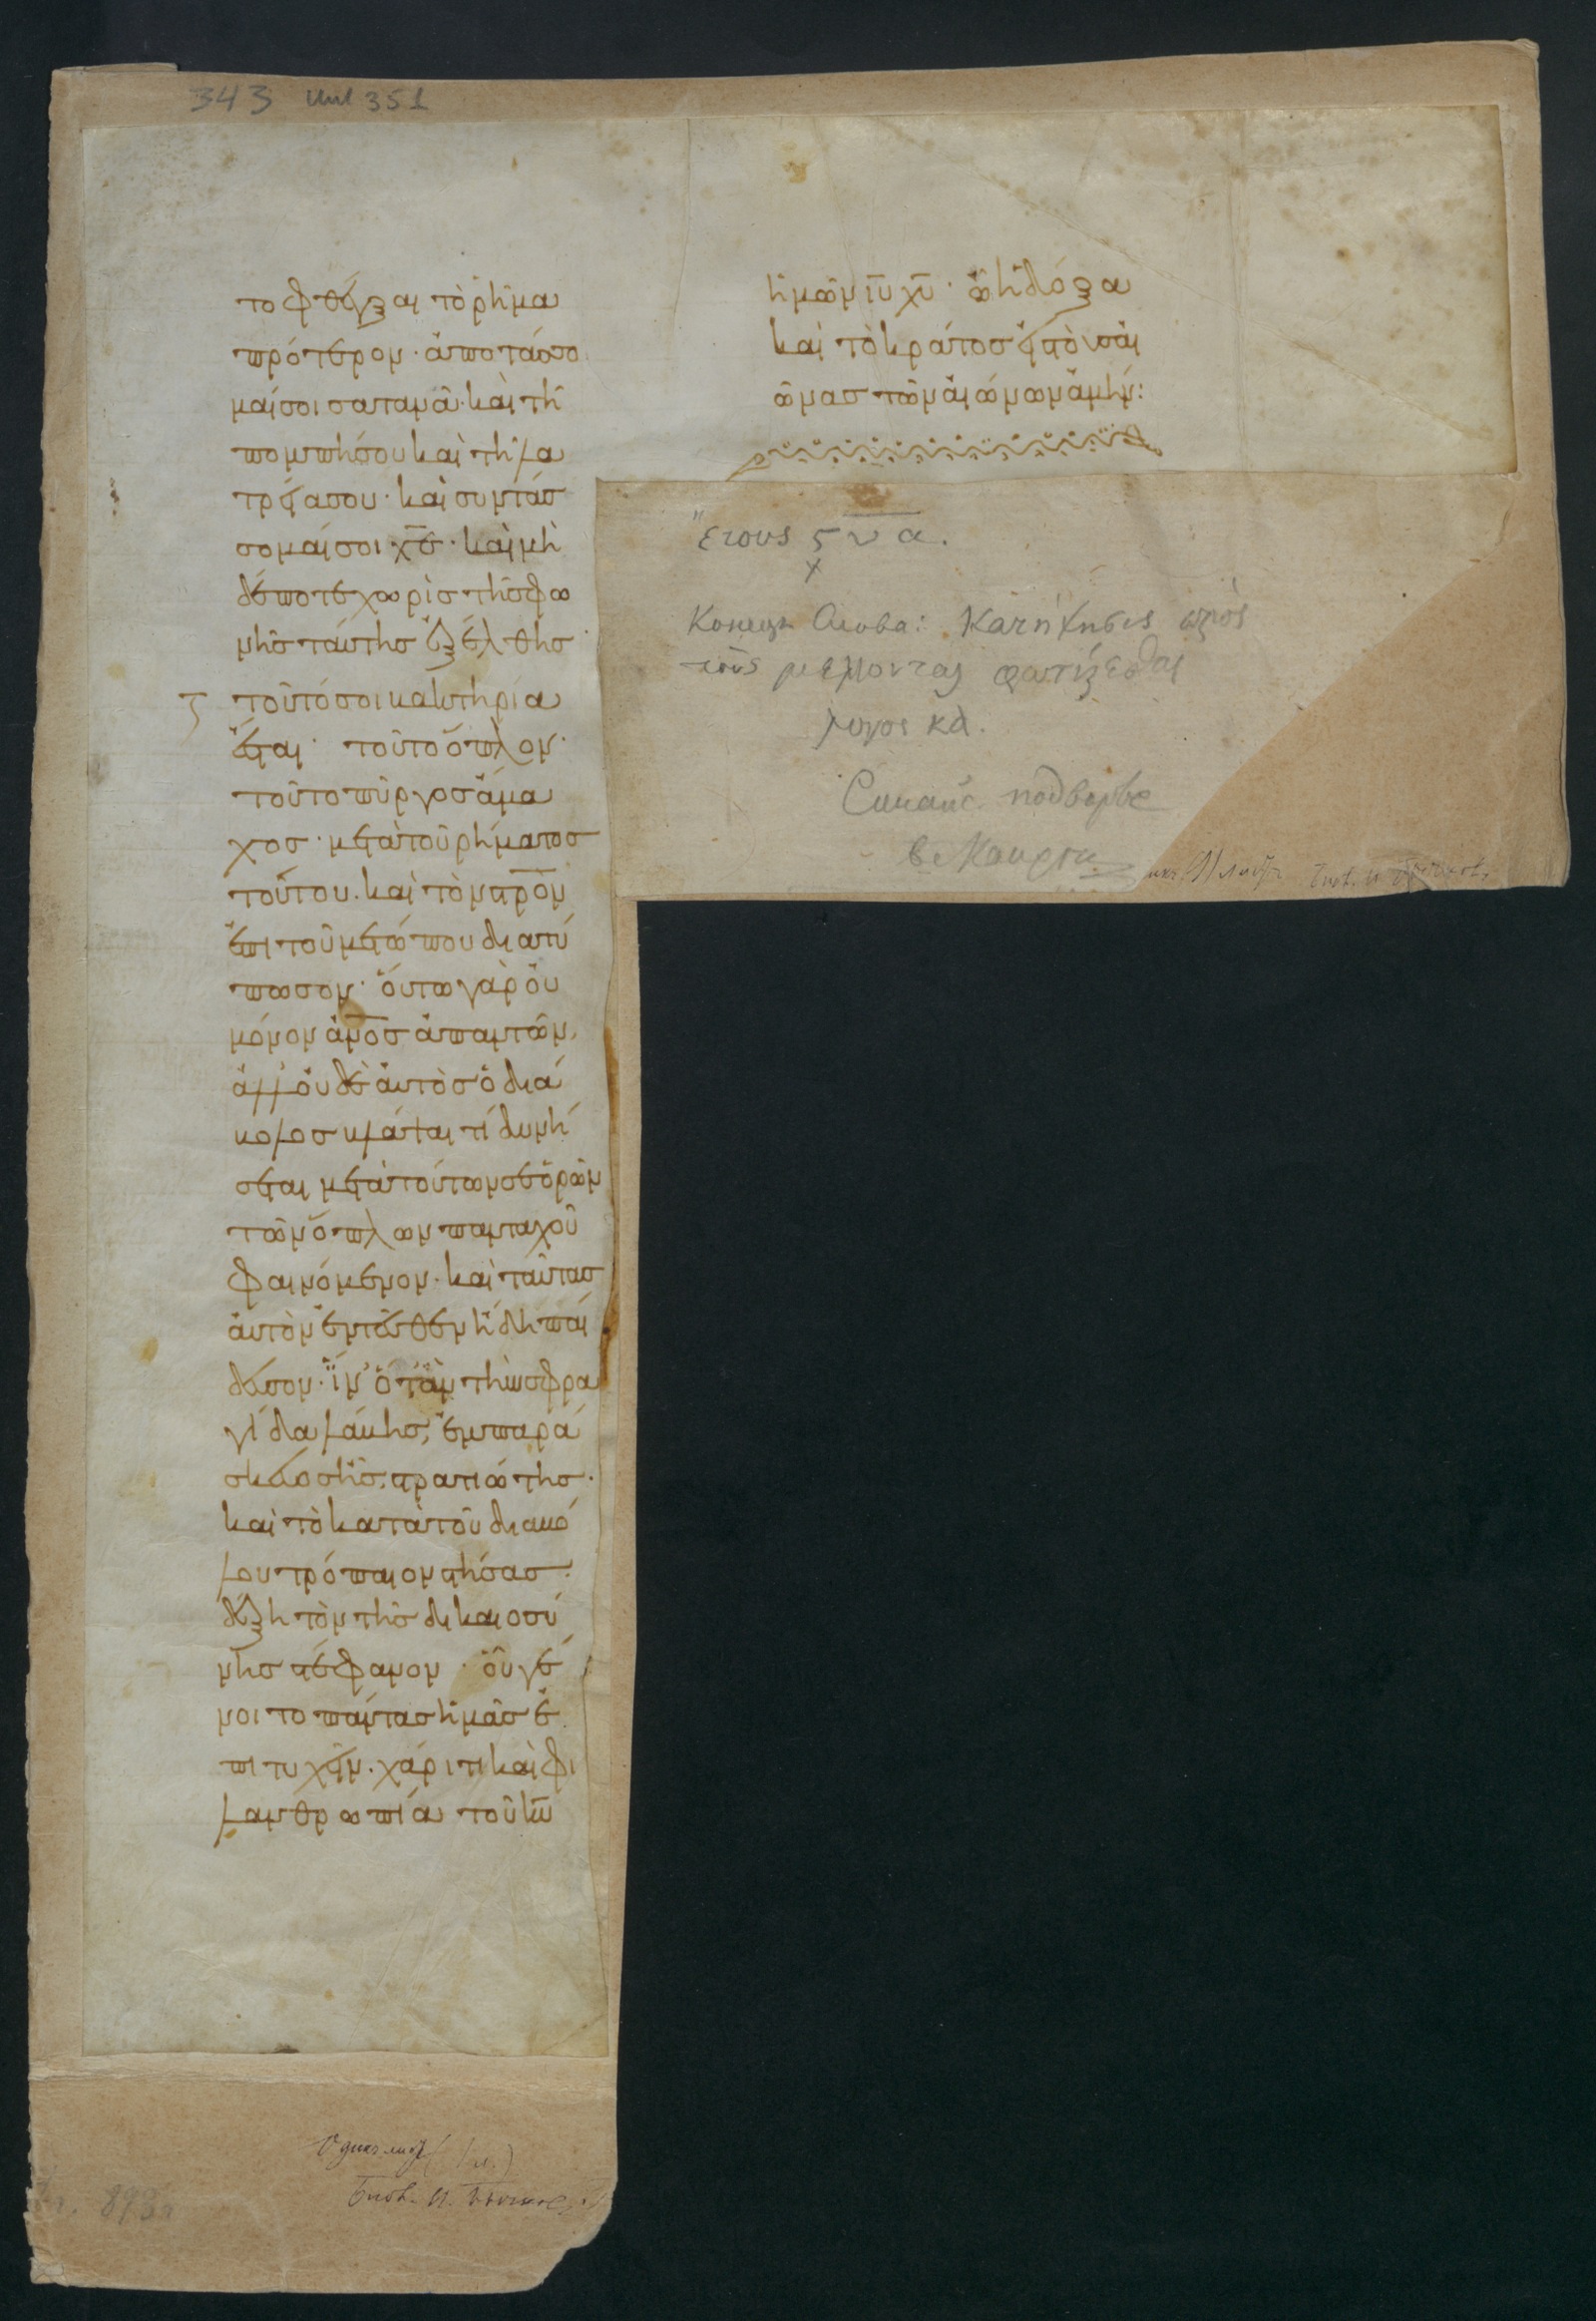 343 Инв 351
το φθέγξαι τὸ ρῆμα
πρότερον· ἀποτάσσο
μαί σοι σατανᾶ· καὶ τῆ
πομπῆ σου καὶ τῆ λα
τρεία σου· καὶ συντάσ
σομαί σοι χ̅ε̅· καὶ μη
δέποτε χωρὶς τῆς φω
νῆς ταύτης ἐξέλθης·
τοῦτό σοι βακτηρία
ἔσται· τοῦτο ὅπλον·
τοῦτο πύργος ἄμα
χος· μετὰ τοῦ ρήματος
τούτου. καὶ τὸν στ̅ρο̅ν
ἐπι τοῦ μετώπου διατύ
πωσον· οὕτω γὰρ οὐ
μόνον ἀν̅ο̅ς ἀπαντῶν,
ἀλλ' οὐδὲ ἀυτὸς ὁ διά
βολος βλάψαι τί δυνή
σεται μετὰ τούτων σε ὁρῶν
τῶν ὅπλων πανταχοῦ
φαινόμενον· καὶ ταῦτας
ἀυτὸν ἐντεῦθεν ἤδη παί
δευσον· ἵν' ὅταν τὴν σφρα
γίδα λάβης, ἐμπαρά
σκευος ἧς στρατιώτης·
καὶ τὸ κατὰ τοῦ διαβό
λου τρόπαιον στήσας·
δέξη τὸν τῆς δικαιοσύ
νης στέφανον· οὗ γέ
νοιτο πάντας ἡμᾶς ἐ
πιτυχεῖν· χάριτι καὶ φι
λανθρωπία τοῦ κ̅υ̅
ἡμῶν ι̅υ̅ χ̅υ̅· ὧ ἡ δόξα
καὶ τὸ κράτος εἰς τοὺς αἰ
ῶνας τῶν αἰώνων ἀμήν:
ἔτους ϛ υ α.
Конецъ Слова: Κατήχησις πρὸς
τοὺς μέλλοντας φωτίζεσθαι
λόγος κα.
Синайс. подворье
в Каире
Одинъ листъ (1 л.)
Библ. И. Бычковъ